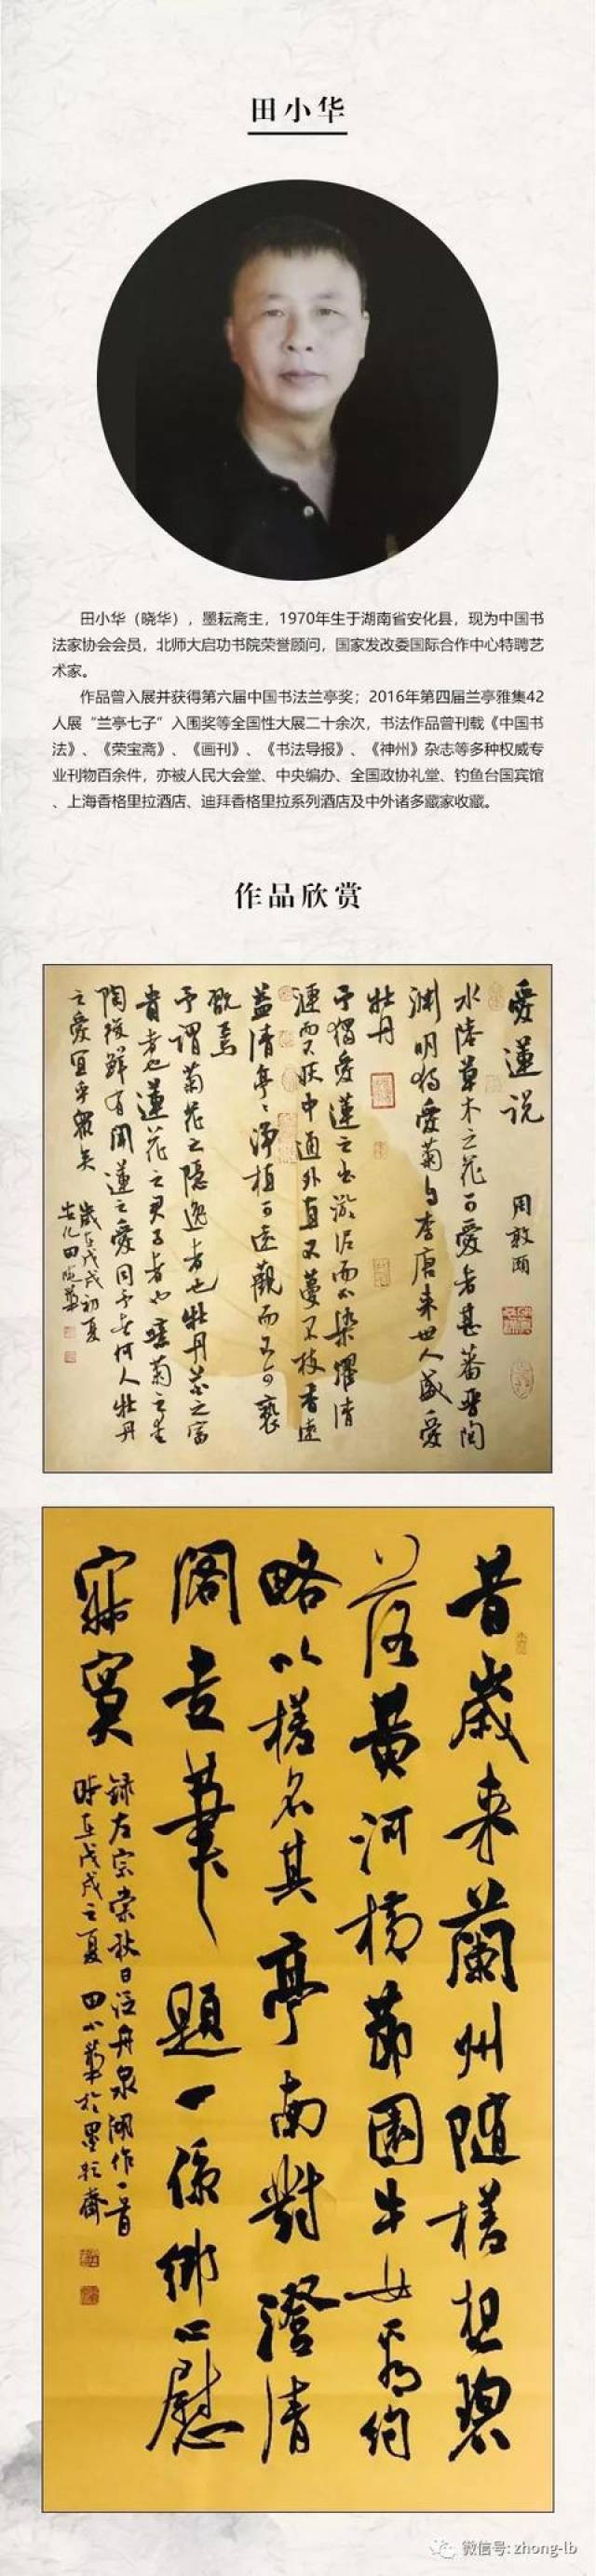 田小华
田小华（晓华），墨耘斋主，1970年生于湖南省安化县，现为中国书
法家协会会员，北师大启功书院荣誉顾问，国家发改委国际合作中心特聘艺
术家。
作品曾入展并获得第六届中国书法兰亭奖；2016年第四届兰亭雅集42
人展“兰亭七子”入围奖等全国性大展二十余次，书法作品曾刊载《中国书
法》、《荣宝斋》、《画刊》、《书法导报》、《神州》杂志等多种权威专
业刊物百余件，亦被人民大会堂、中央编办、全国政协礼堂、钓鱼台国宾馆
、上海香格里拉酒店、迪拜香格里拉系列酒店及中外诸多藏家收藏。
作品欣赏
愛蓮说 周敦頤
水陸草木之花可愛者甚蕃晋陶
渊明独愛菊自李唐来世人盛愛
牡丹
予獨愛蓮之出淤泥而不染濯清
漣而不妖中通外直不蔓不枝香遠
益清亭亭淨植可遠觀而不可褻
翫焉
予謂菊花之隱逸者也牡丹花之富
貴者也蓮花之君子者也噫菊之愛
陶後鮮有聞蓮之愛同予者何人牡丹
之愛宜乎眾矣
歲在戊戌初夏
安化田曉華
昔歲来蘭州随槎想碧
落黄河横節園牛女高約
略以槎名其亭南對澄清
閣走筆題一係鄉心慰
寂寞
録左宗棠秋日泛舟泉湖作一首
時在戊戌之夏 田小華於墨耘齋
微信号: zhong-lb